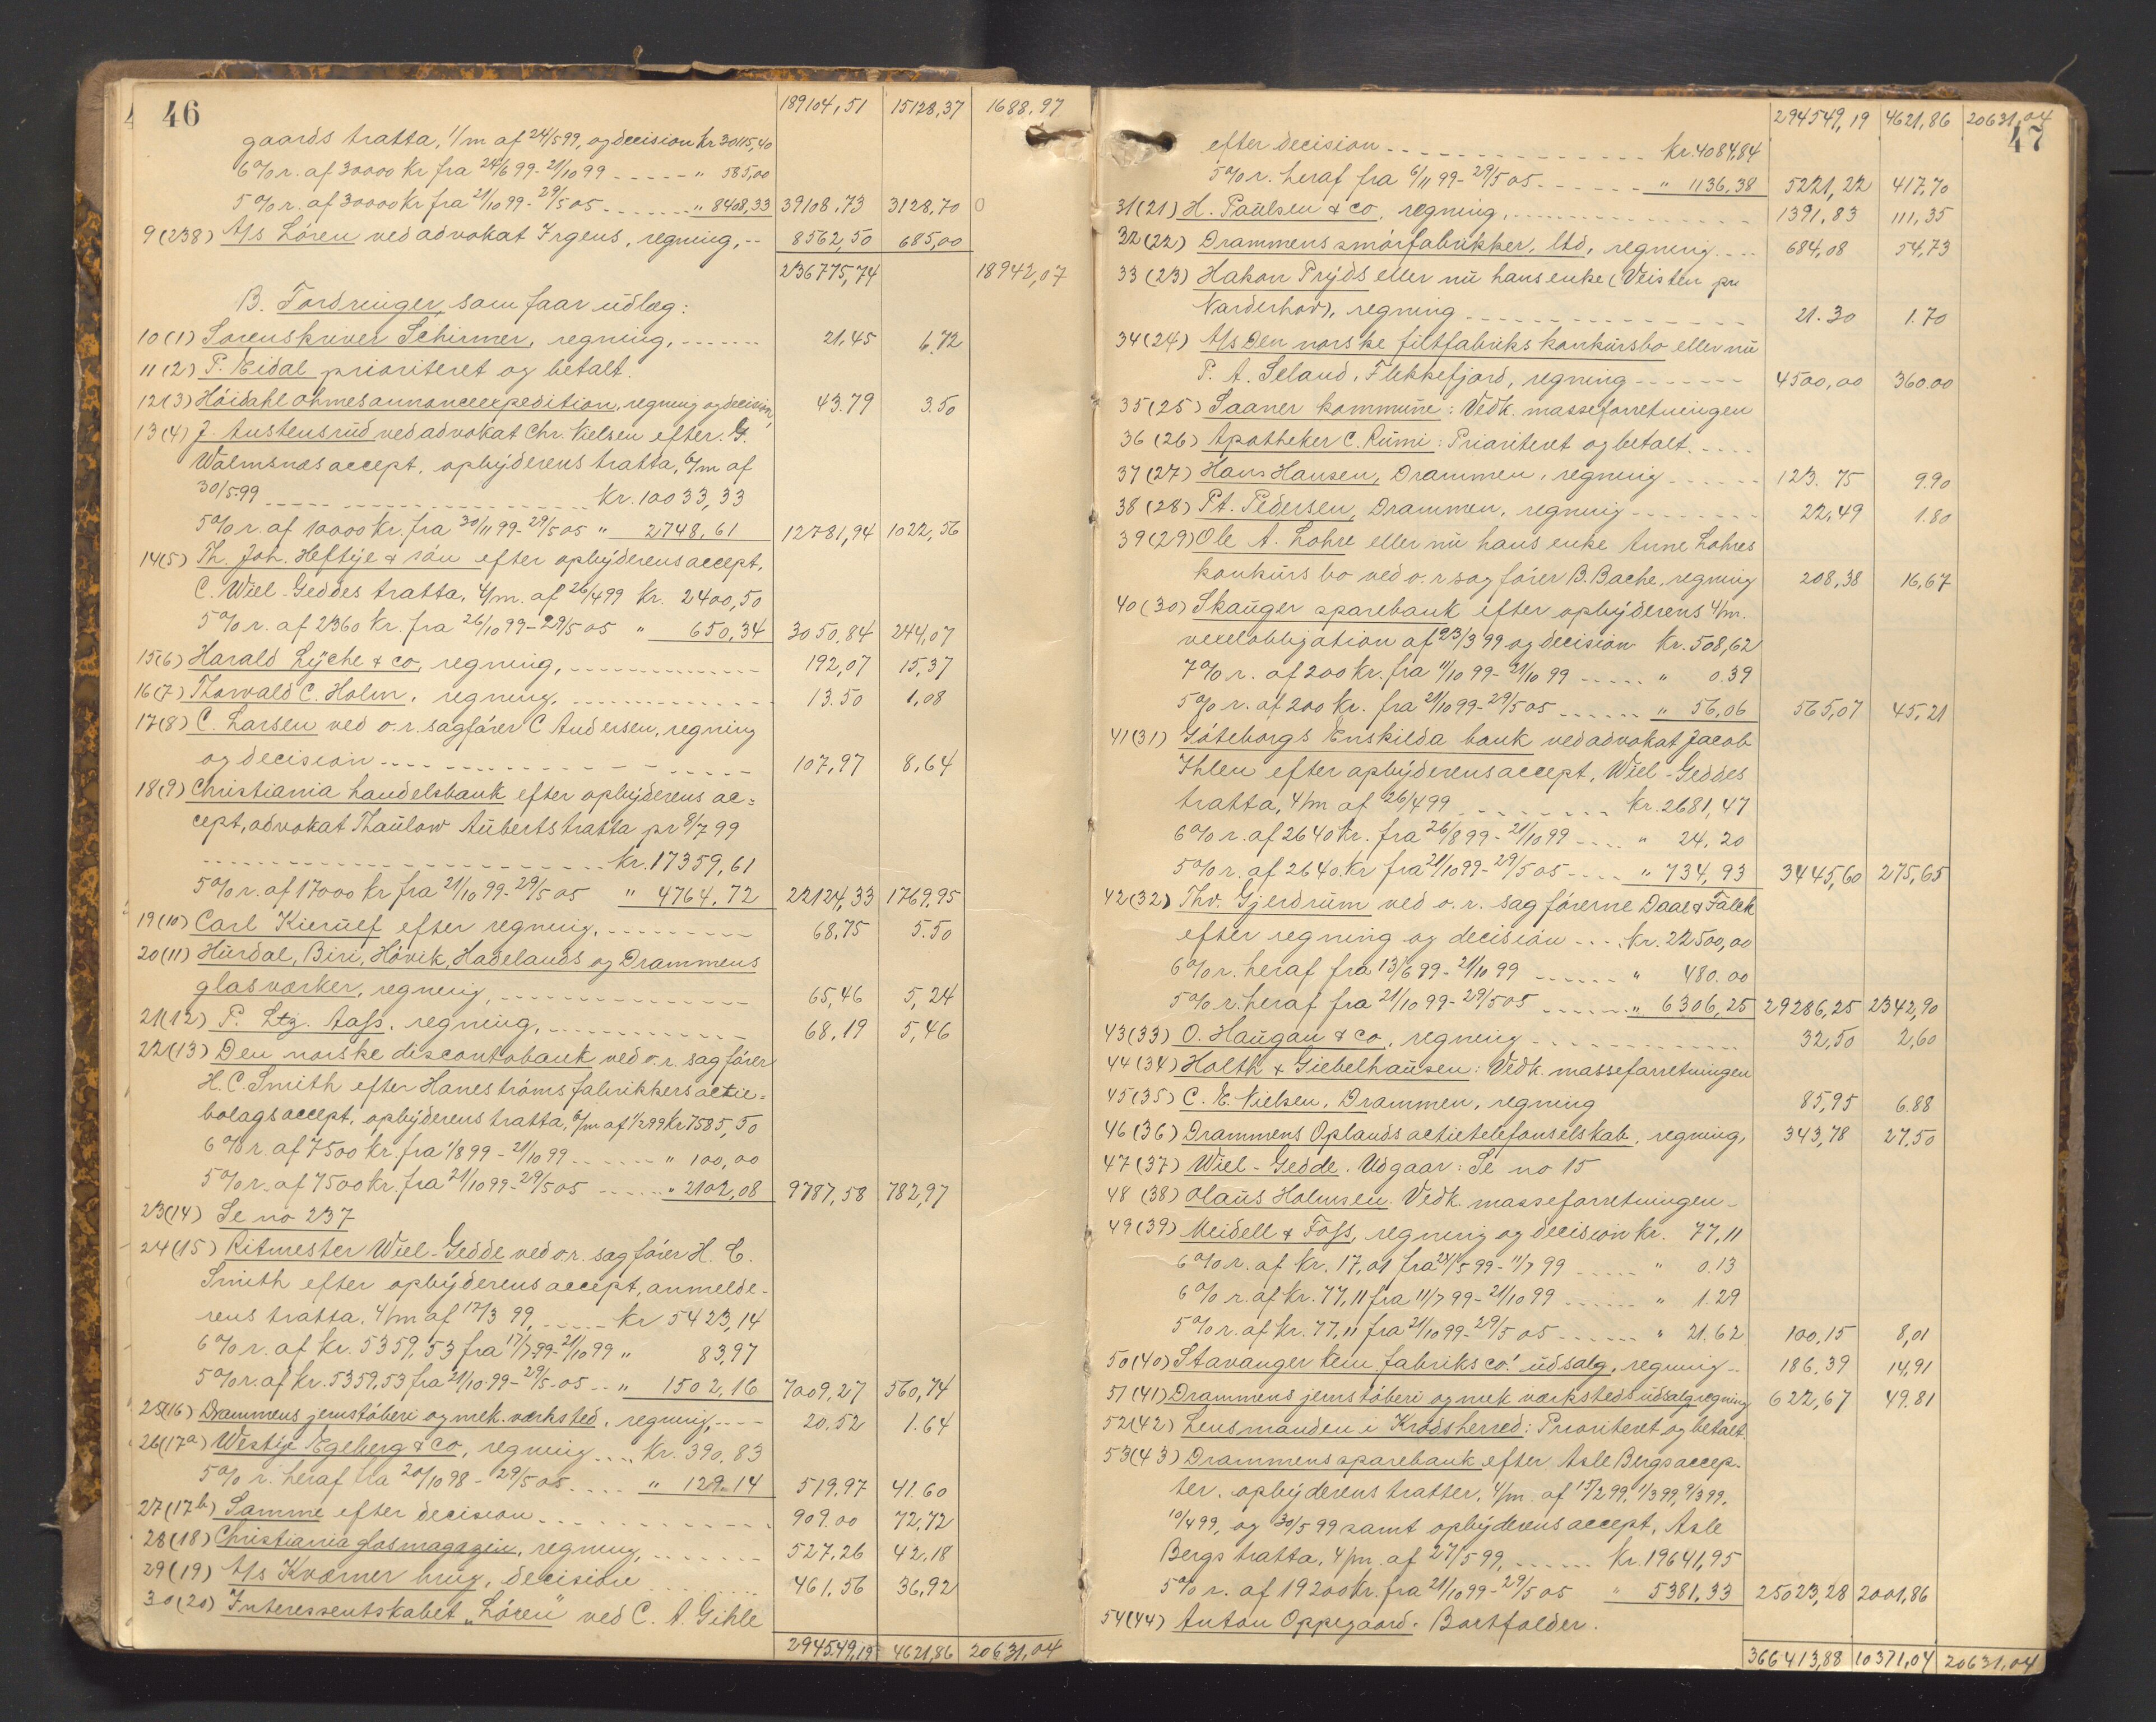 46
189104,51 15128,37 1688,97
gaards tratta, 1/m af 24/5 99, og decision Kr 30115,40
6 % r. af 30000 Kr fra 24/6 99 - 21/10 99 ----- " 585,00
5 % r. af 30000 Kr fra 21/10 99 - 29/5 05 ------ " 8408,33 39108,73 3128,70 0
9 (238) A/s Lóren ved advokat Irgens, regning, -- 8562,50 685,00
236775,74 18942,07
B. Fordringer, som faar udlæg:
10 (1) Sorenskriver Schirmer, regning, ------- 21,45 6.72
11 (2) P. Eidal prioriteret og betalt.
12 (3) Höidahl Ohmes annonceexpedition, regning og decision, 43.79 3.50
13 (4) J. Austensrud ved advokat Chr. Nielsen efter G.
Walmsnæs accept, opbyderens tratta, 6/m af
30/5 99 ----- Kr. 10033,33
5 % r. af 10000 Kr. fra 30/11 99 - 29/5 05 " 2748,61 12781,94 1022,56
14 (5) Th. Joh. Heftye & sön efter opbyderens accept,
C. Wiel-Geddes tratta, 4/m. af 26/4 99 Kr. 2400,50
5 % r. af 2360 Kr. fra 26/10 99 - 29/5 05 " 650,34 3050,84 244,07
15 (6) Harald Lyche & co, regning, ------------- 192,07 15,37
16 (7) Thorvald C. Holm, regning, ------------- 13.50 1,08
17 (8) C. Larsen ved o.r. sagförer C Andersen, regning
og decision ------------- 107,97 8,64
18 (9) Christiania handelsbank efter opbyderens ac=
cept, advokat Thaulow Auberts tratta pr 8/7 99
------------- Kr. 17359,61
5 % r. af 17000 Kr fra 21/10 99 - 29/5 05 " 4764,72 22124,33 1769,95
19 (10) Carl Kierulf efter regning, --------- 68,75 5.50
20 (11) Hurdal, Biri, Hövik, Hadelands og Drammens
glasværker, regning, ------------- 65,46 5,24
21 (12) P. Ltz. Aass, regning, ------------- 68,19 5,46
22 (13) Den norske discontobank ved o.r. sagförer
H. C. Smith efter Haneströms fabrikkers actie=
bolags accept, opbyderens tratta, 6/m af 1/2 99 Kr 7585,50
6 % r. af 7500 Kr. fra 1/8 99 - 21/10 99 ------ " 100,00
5 % r. af 7500 Kr. fra 21/10 99 - 29/5 05 ------ " 2102,08 9787,58 782,97
23 (14) Se no 237
24 (15) Ritmester Wiel-Gedde ved o.r. sagförer H. C.
Smith efter opbyderens accept, anmelde-
rens tratta, 4/m af 17/3 99, ----- Kr 5423,14
6 % r. af Kr. 5359,53 fra 17/7 99 - 21/10 99 " 83,97
5 % r. af Kr. 5359,53 fra 21/10 99 - 29/5 05 -- " 1502,16 7009,27 560,74
25 (16) Drammens jernstöberi og mek. værksted, regning, ---- 20.52 1.64
26 (17a) Westye Egeberg & co, regning ---- Kr. 390,83
5 % r. heraf fra 20/10 98 - 29/5 05 ---- " 129.14 519,97 41.60
27 (17b) Samme efter decision ------------- 909.00 72,72
28 (18) Christiania glasmagazin, regning, ------- 527,26 42,18
29 (19) A/s Kværner brug, decision ------- 461,56 36,92
30 (20) Interessentskabet „Lóren" ved C. A. Gihle
294549,19 4621,86 20631,04
47
294549,19 4621,86 20631,04
efter decision ------------- Kr. 4084,84
5 % r. heraf fra 6/11 99 - 29/5 05 ------ " 1136,38 5221,22 417,70
31 (21) H. Paulsen & co, regning, ------------- 1391,83 111,35
32 (22) Drammens smörfabrikker, ltd, regning ---- 684,08 54,73
33 (23) Hakon Pryds eller nu hans enke (Veisten pr
Norderhov), regning ------------- 21.30 1.70
34 (24) A/s Den norske filtfabriks konkursbo eller nu
P. A. Seland, Flekkefjord, regning ------- 4500,00 360.00
35 (25) Saaner kommune: Vedk. masseforretningen
36 (26) Apotheker C. Rumi: Prioriteret og betalt. ----
37 (27) Hans Hansen, Drammen, regning ------ 123.75 9.90
38 (28) Pt. Pedersen, Drammen, regning ------ 22,49 1.80
39 (29) Ole A. Lohre eller nu hans enke Anne Lohres
konkursbo ved o.r. sagförer B. Bache, regning 208,38 16,67
40 (30) Skauger sparebank efter opbyderens 4/m.
vexelobligation af 23/3 99 og decision Kr. 508,62
7 % r. af 200 Kr. fra 11/10 99 - 21/10 99 ----- " 0.39
5 % r. af 200 Kr. fra 21/10 99 - 29/5 05 ------ " 56,06 565,07 45,21
41 (31) Göteborgs Enskilda bank ved advokat Jacob
Ihlen efter opbyderens accept, Wiel-Geddes
tratta, 4/m af 26/4 99 ------- Kr. 2681,47
6 % r. af 2640 Kr. fra 26/8 99 - 21/10 99 ---- " 24,20
5 % r. af 2640 Kr fra 21/10 99 - 29/5 05 ---- " 734,93 3445,60 275,65
42 (32) Thv. Gjerdrum ved o.r. sagförerne Daae & Falck
efter regning og decision ---- Kr. 22500,00
6 % r. heraf fra 13/6 99 - 21/10 99 ------ " 480.00
5 % r. heraf fra 21/10 99 - 29/5 05 ------ " 6306,25 29286,25 2342,90
43 (33) O. Haugan & co, regning ------------- 32,50 2,60
44 (34) Holth & Giebelhausen: Vedk. masseforretningen
45 (35) C. E. Nielsen, Drammen, regning 85,95 6.88
46 (36) Drammens Oplands actietelefonselskab, regning, 343,78 27,50
47 (37) Wiel-Gedde. Udgaar: Se no 15
48 (38) Olaus Holmsen. Vedk. masseforretningen -
49 (39) Meidell & Foss, regning og decision Kr. 77,11
6 % r. af Kr. 17,01 fra 24/5 99 - 11/7 99 ----- " 0.13
6 % r. af Kr. 77,11 fra 11/7 99 - 21/10 99 ------ " 1.29
5 % r. af Kr. 77,11 fra 21/10 99 - 29/5 05 ------ " 21.62 100,15 8,01
50 (40) Stavanger kem. fabriks co.' udsalg, regning -- 186,39 14,91
51 (41) Drammens jernstöberi og mek værksteds udsalg regning 622,67 49.81
52 (42) Lensmanden i Krodsherred: Prioriteret og betalt.
53 (43) Drammens sparebank efter Asle Bergs accep-
ter, opbyderens tratter, 4/m. af 15/2 99, 1/3 99, 9/3 99,
10/4 99, og 30/5 99 samt opbyderens accept, Asle
Bergs tratta, 4/m. af 27/5 99, ------ Kr. 19641,95
5 % r. af 19200 Kr. fra 21/10 99 - 29/5 05 " 5381,33 25023,28 2001,86
54 (44) Anton Oppegaard. Bortfalder.
366413,88 10371,04 20631,04